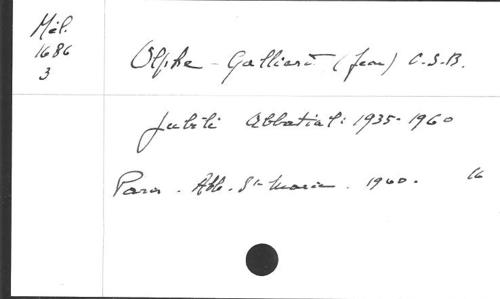 Mél.
1686
3
Olphe-Galliard (Jean) O.S.B.
Jubilé Abbatial: 1935-1960
Paris. Abb. Ste Marie. 1960. 16